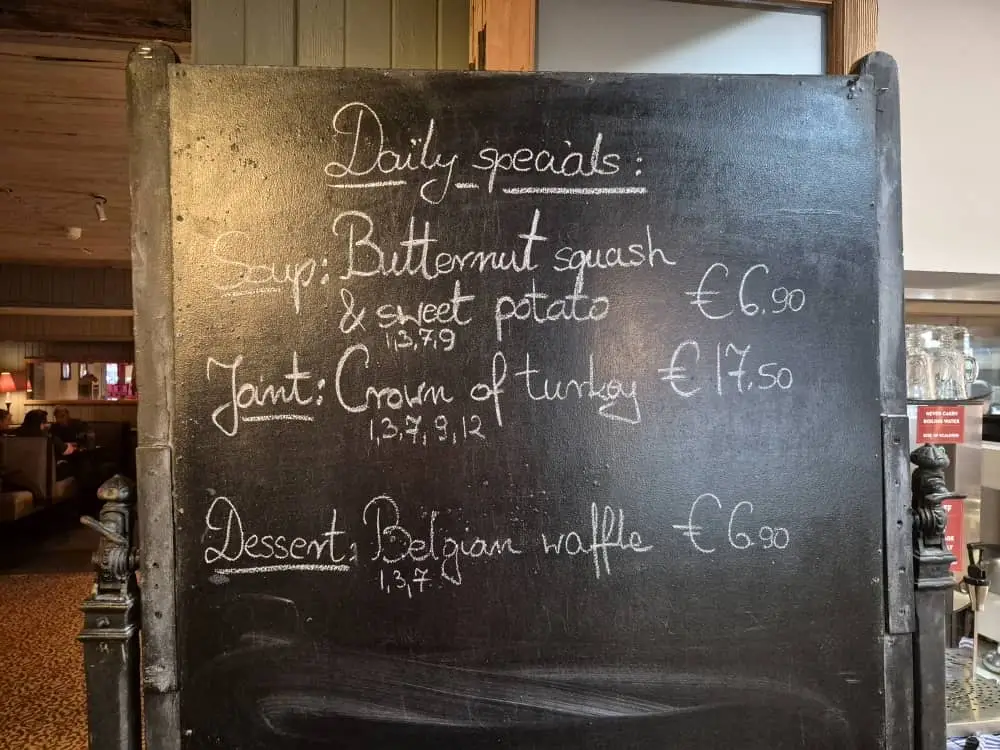 Daily specials:
Soup: Butternut squash
& sweet potato €6.90
1,3,7,9
Joint: Crown of turkey €17.50
1,3,7,9,12
Dessert: Belgian waffle €6.90
1,3,7
NEVER CARRY
BOILING WATER